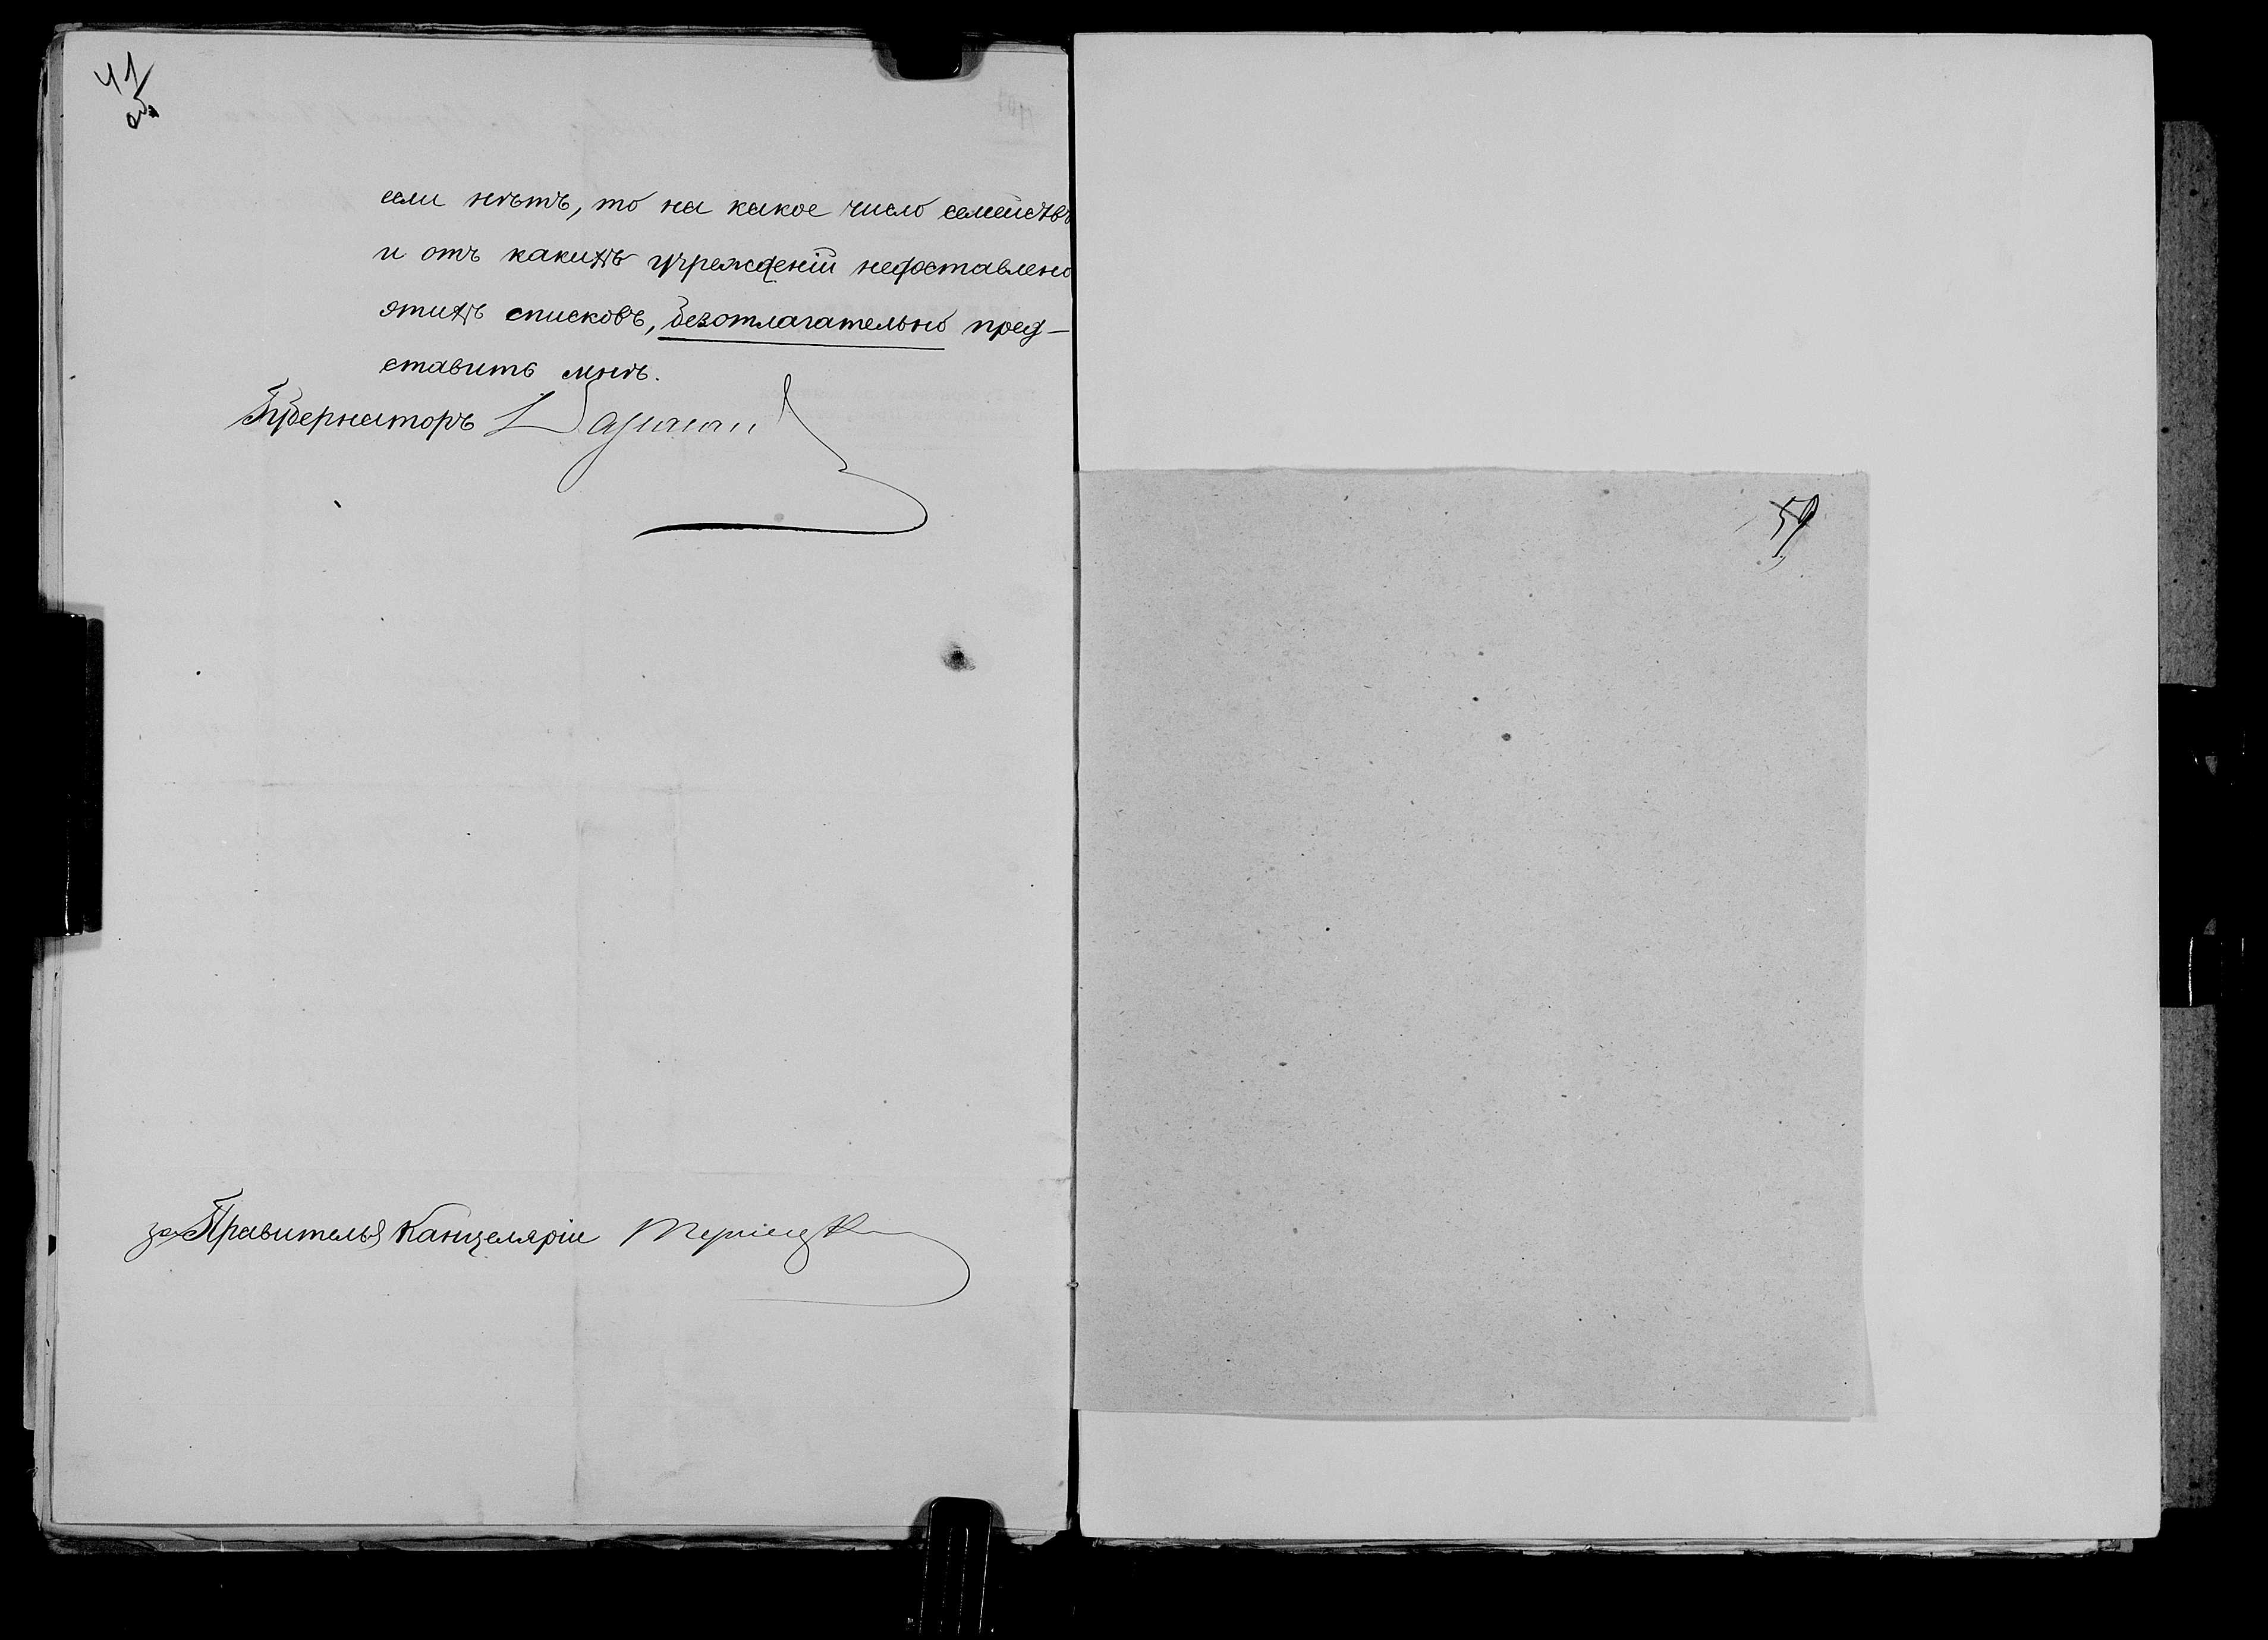 41
об
если нѣтъ, то на какое число семействъ
и отъ какихъ учрежденій недоставлено
этихъ списковъ, безотлагательно пред-
ставить мнѣ.
Губернаторъ
за Правителя Канцеляріи
59